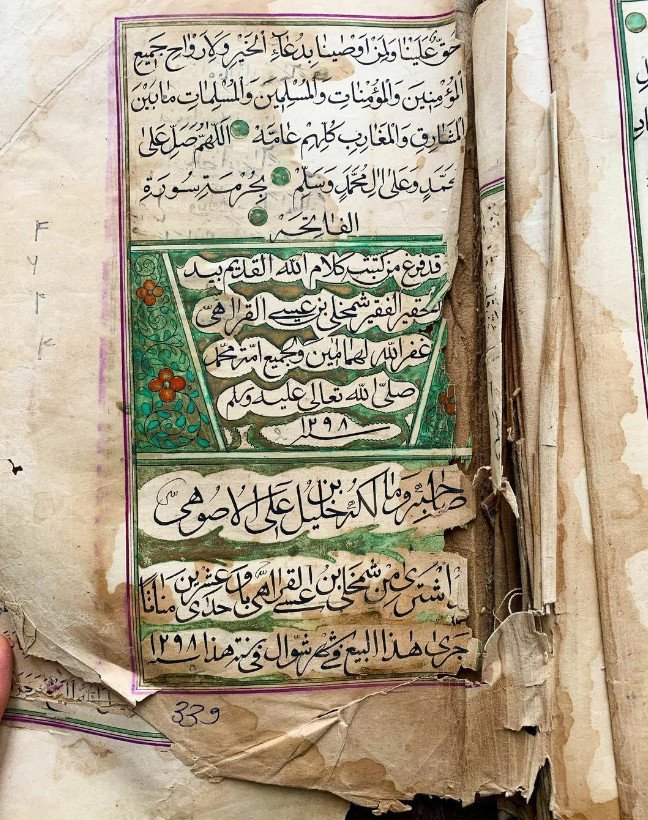 حق علينا ولمن اوصينا بدعاء الخير ولارواح جميع
المؤمنين والمؤمنات والمسلمين والمسلمات ما بين
المشارق والمغارب كلهم عامة اللهم صل على
محمد وعلى ال محمد وسلم بحرمة سورة
الفاتحة
قد فرغ من كتب كلام الله القديم بيد
الحقير الفقير شمخلي بن عيسى القراهي
غفر الله لهما امين ولجميع امة محمد
صلى الله تعالى عليه وسلم
سنة ١٢٩٨
صاحبه ومالكه بن خليل على الاصوهي
اشترى من شمخلي ابن عيسى القراهي با حدى وعشرين مناتا
جرى هذا البيع في شهر شوال في سنة هذا ١٢٩٨
339